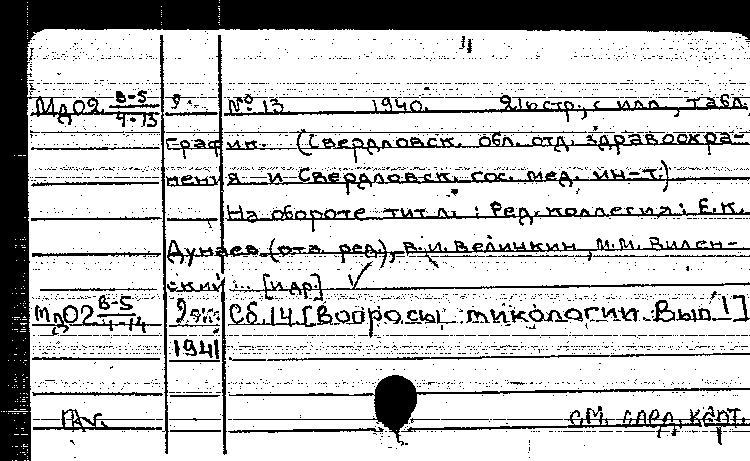 11
Мд02. В-5/4-13 № 13 1940. 211 стр., с илл., табл.,
график. (Свердловск. обл. отд. здравоохра-
нения и Свердловск. гос. мед. ин-т.)
На обороте тит л.: Ред. коллегия: Е.К.
Дунаев (отв. ред.), В.И. Величкин, М.М. Вилен-
ский ... [и др]
Мд02 В-5/4-14 2 эк. Сб. 14. [Вопросы микологии. Вып. 1]
1941
см. след. карт.